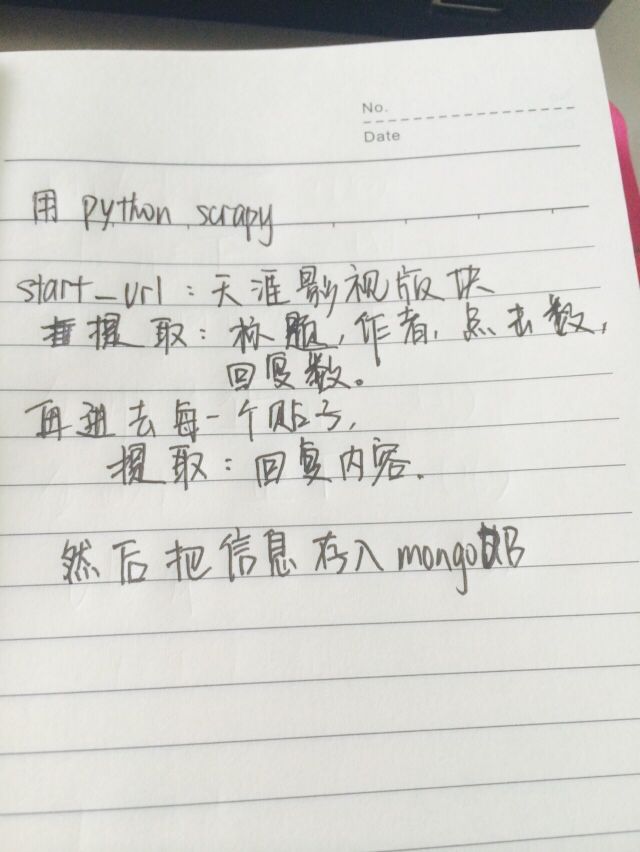 No.
Date
用 python scrapy
start_url：天涯影视版块
提取：标题，作者，点击数，
回复数。
再进去每一个贴子，
提取：回复内容．
然后把信息存入mongoDB